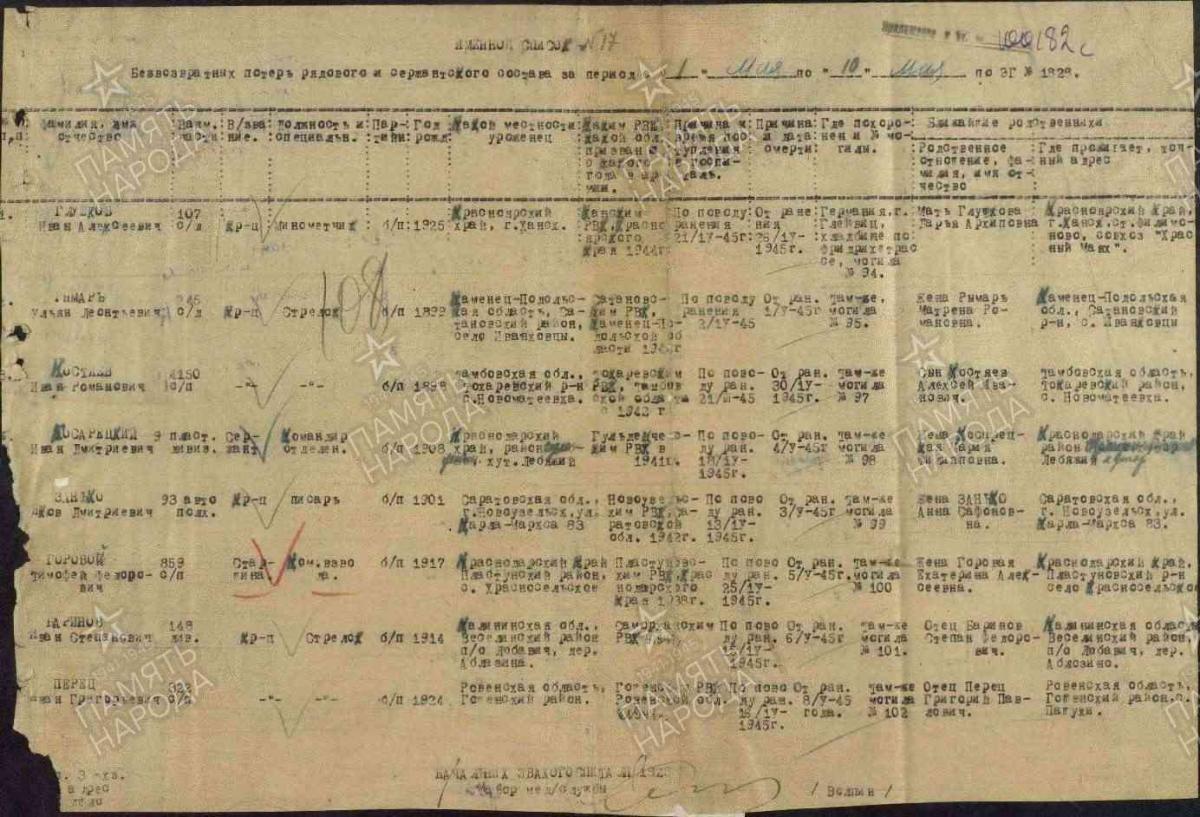 100182с
ИМЕННОЙ СПИСОК №17
Безвозвратных потерь рядового и сержантского состава за период с "1" Мая по "10" Мая по ЭГ № 1828.
Фамилия, имя отчество
Наим. части
В/зва- ние.
Должность и специальн.
Пар- тийн.
Год рожд.
Какой местности уроженец
Каким РВК, какой обл. призван
Причина и время пос- тупления в госпи- таль.
Причина и дата смерти.
Где похоро- нен и № мо- гилы.
Ближайшие родственники
Родственное отношение, фа- милия, имя от- чество
Где проживает, точ- ный адрес
ГЛУШКОВ Иван Алексеевич
107 с/д
Кр-ц
Минометчик
б/п
1925
Красноярский край, г.Канск.
Канским РВК, Красно- ярского края 1944г.
По поводу ранения 21/IУ-45г.
От ране- ния 28/IУ- 1945г.
Германия, г. Глейвиц, кладбище по фридрихстрас- се, могила № 94.
Мать Глушкова Дарья Архиповна
Красноярский край, г.Канск, ст.Филимо- ново, совхоз "Крас- ный Маяк".
108
РЫМАРЬ Ульян Леонтьевич
245 с/д
Кр-ц
Стрелок
б/п
1899
Каменец-Подольс- кая область, Са- тановский район, село Иванковцы.
Сатановс- ким РВК, Каменец-По- дольской об ласти 194 г
По поводу ранения 2/IУ-45
От ран. 1/У-45г
там-же, могила № 95.
Жена Рымарь Матрена Ро- мановна.
Каменец-Подольская обл., Сатановский р-н, с. Иванковцы
КОСТЯЕВ Иван Романович
4150 с/п
-"-
-"-
б/п
1898
Тамбовская обл., Токаревский р-н с.Новоматеевка.
Токаревским РВК, тамбов ской области в 1942 г.
По пово- ду ран. 21/Ш-45
От ран. 30/IУ- 1945г.
там-же могила № 97
Сын Костяев Алексей Ива- нович.
Тамбовская область, Токаревский район, с. Новоматеевка.
КОСАРЕЦКИЙ Иван Дмитриевич
9 пласт. дивиз.
Сер- жант
Командир отделен.
б/п
1908
Краснодарский край, район хут.Лебяжий
Гулькевичес- ким РВК в 1941г.
По пово- ду ран. 18/IУ- 1945г.
От ран. 4/У-45г
там-же могила № 98
Жена Косарец- кая Мария
Краснодарский край район Лебяжий хутор
ЗАНЬКО Яков Дмитриевич
93 авто полк.
Кр-ц
писарь
б/п
1901
Саратовская обл., г.Новоузельск, ул. Карла-Маркса 83
Новоузельс- ким РВК, Са- ратовской обл. 1942г.
По пово ду ран. 13/IУ- 1945г.
От ран. 3/У-45г
там-же могила № 99
Жена ЗАНЬКО Анна Сафонов- на.
Саратовская обл., г. Новоузельск, ул. Карла-Маркса 83.
ГОРОВОЙ Тимофей Федоро- вич
859 с/п
Стар- шина
Ком.взво да.
б/п
1917
Краснодарский край Пластунский район, с. Красносельское
Пластуновс- ким РВК, Крас нодарского края 1938г.
По пово ду ран. 25/IУ- 1945г.
От ран. 5/У-45г.
там-же могила № 100
Жена Горовая Екатерина Алек- сеевна.
Краснодарский край. Пластуновский р-н село Красносельско
БАРИНОВ Иван Степанович
148 див.
Кр-ц
Стрелок
б/п
1914
Калининская обл., Веселинский район п/с Лобавич, дер. Аблазина.
РВК
По пово ду ран. 15/IУ- 1945г.
От ран. 6/У-45г
там-же могила № 101.
Отец Баринов Степан Федоро- вич.
Калининская область Веселинский район, п/с Лобавич, дер. Аблозино.
ПЕРЕЦ Иван Григорьевич
322 с/д
-"-
-"-
б/п
1924
Ровенская область, Гощенский район.
Гощенским РВК Ровенской обл. 1944г.
По пово ду ран. 18/IУ- 1945г.
От ран. 8/У-45 года.
там-же могила № 102
Отец Перец Григорий Пав- лович.
Ровенская область, Гощенский район, с.
НАЧАЛЬНИК ЭВАКОГОСПИТАЛЯ 1828
Майор мед/службы / Волын /
ПАМЯТЬ НАРОДА